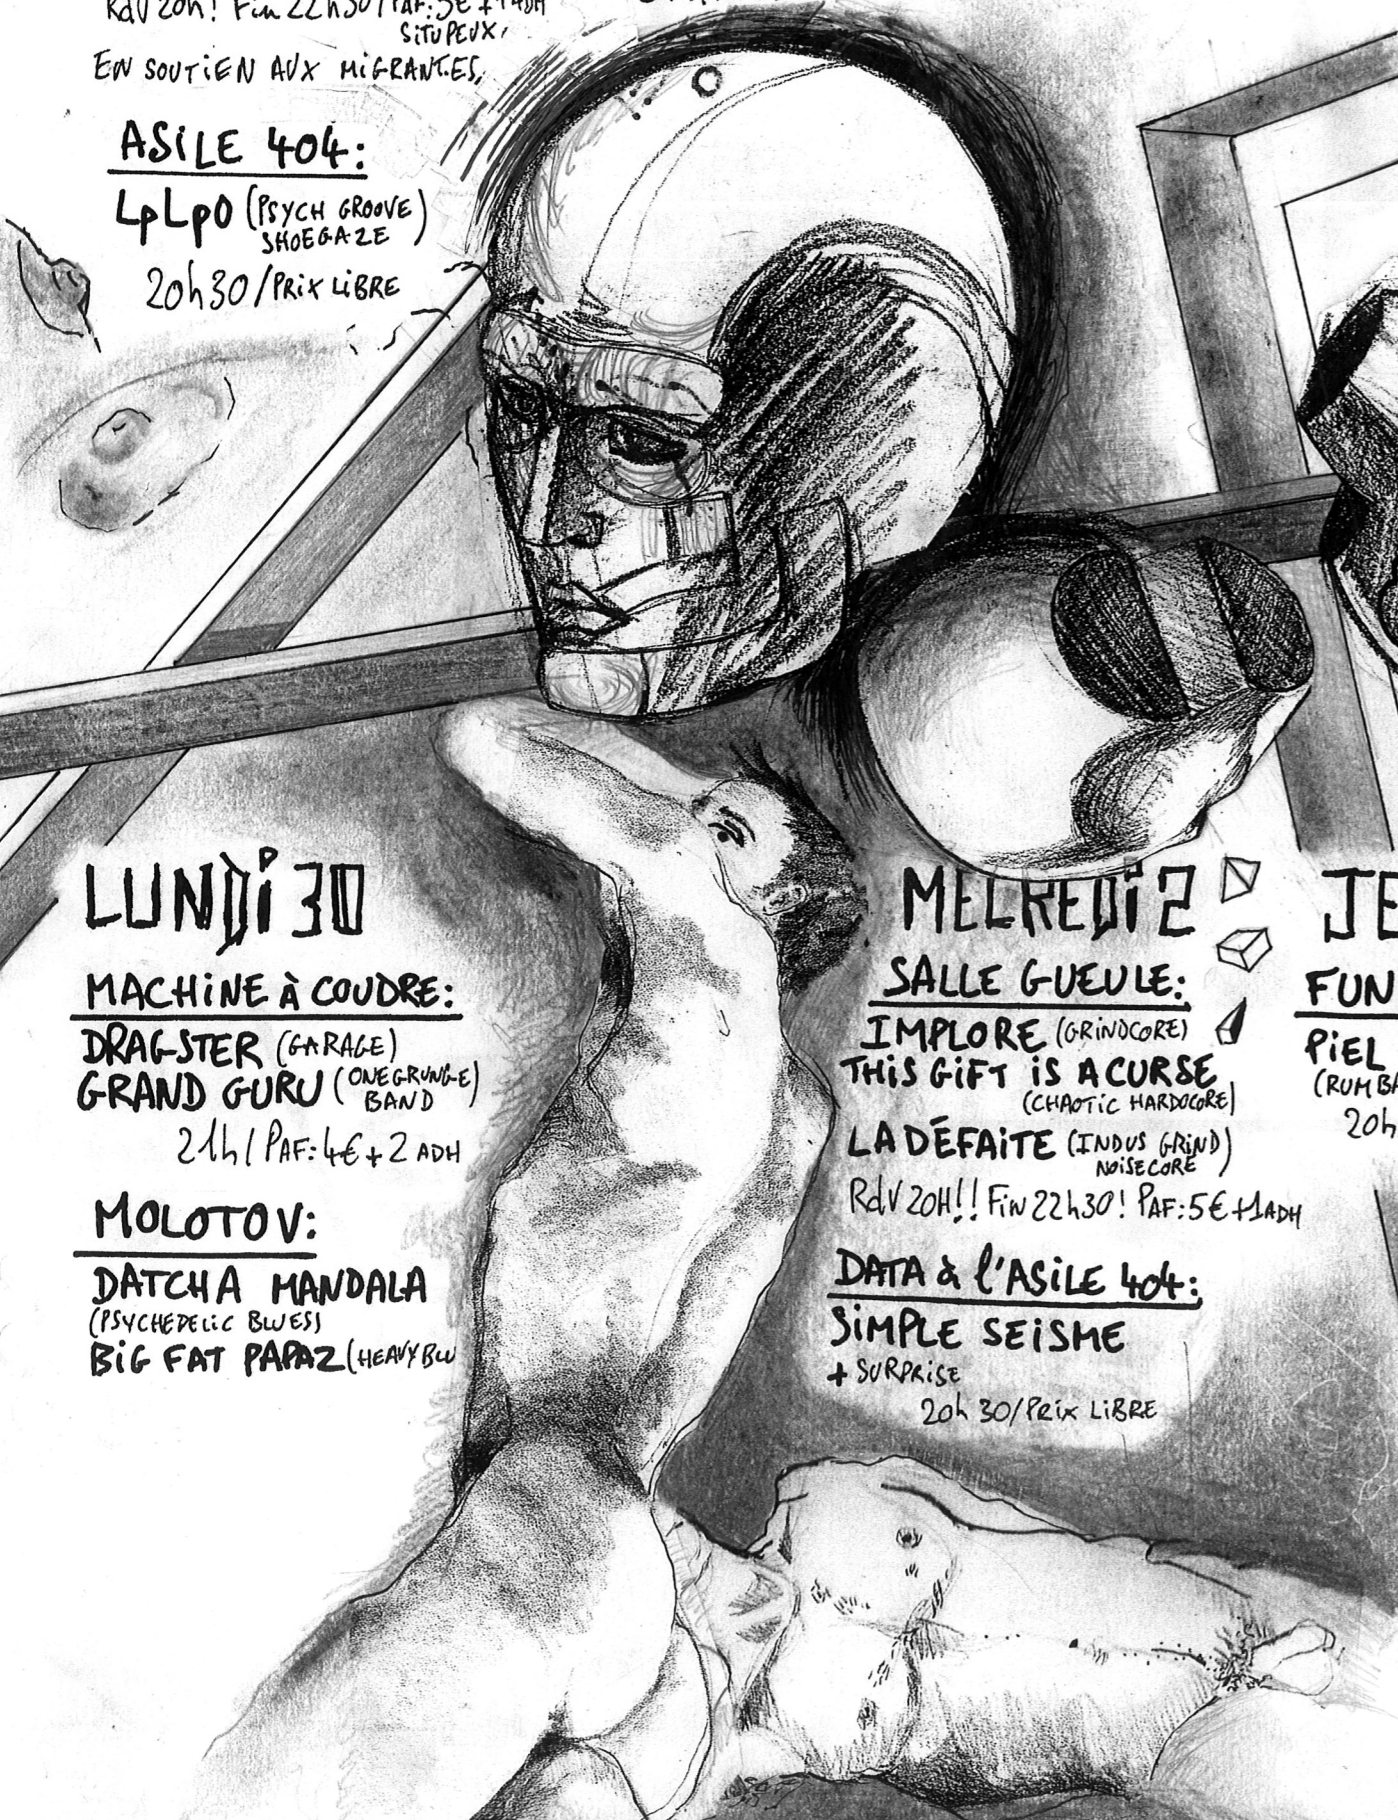 RdV 20h! Fin 22h30/PAF: 5€+1ADH
SiTUPEUX,
EN SOUTiEN AUX MiGRANT.ES,
ASiLE 404:
LpLpO (PSYCH GROOVE)
SHOEGAZE
20h30/PRiX LiBRE
LUNDi 30
MACHiNE À COUDRE:
DRAGSTER (GARAGE)
GRAND GURU (ONEGRUNGE)
BAND
21h/PAF: 4€+2 ADH
MOLOTOV:
DATCHA MANDALA
(PSYCHEDELiC BLUES)
BiG FAT PAPAZ (HEAVY BLU
MELREDi 2
SALLE GUEULE:
IMPLORE (GRiNDCORE)
THiS GiFT iS A CURSE
(CHAOTiC HARDCORE)
LA DÉFAiTE (INDUS GRiND)
NOiSECORE
RdV 20H!! FiN 22h30! PAF: 5€+1ADH
DATA à l'ASiLE 404:
SiMPLE SEiSME
+ SURPRiSE
20h30/PRiX LiBRE
JE
FUN
PiEL
(RUMBA
20h